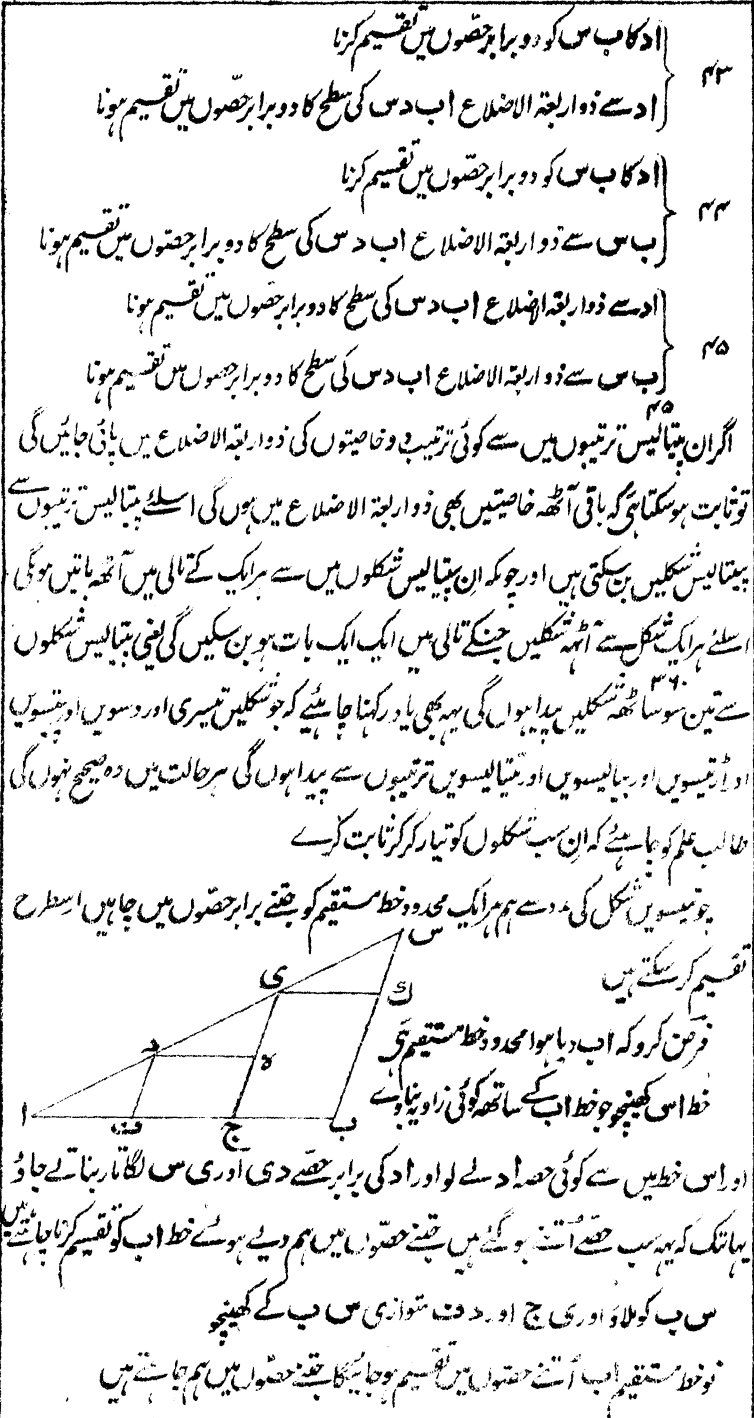 ۴۳
اد کا ب س کو دو برابر حصّوں میں تقسیم کرنا
اد سے ذواربعۃ الاضلاع اب دس کی سطح کا دو برابر حصّوں میں تقسیم ہونا
۴۴
اد کا ب س کو دو برابر حصّوں میں تقسیم کرنا
ب س سے ذواربعۃ الاضلاع اب دس کی سطح کا دو برابر حصّوں میں تقسیم ہونا
۴۵
اد سے ذواربعۃ الاضلاع اب دس کی سطح کا دو برابر حصّوں میں تقسیم ہونا
ب س سے ذواربعۃ الاضلاع اب دس کی سطح کا دو برابر حصوں میں تقسیم ہونا
۴۵
اگر ان پنتالیس ترتیبوں میں سے کوئی ترتیب دو خاصیتوں کی ذواربعۃ الاضلاع میں پائی جائیں گی
تو ثابت ہو سکتا ہی کہ باقی آٹھہ خاصیتیں بھی ذواربعۃ الاضلاع میں ہوں گی اسلئے پنتالیس ترتیبوں سے
پینتالیس شکلیں بن سکتی ہیں اور چونکہ ان پنتالیس شکلوں میں سے ہر ایک کے تالی میں آٹھہ باتیں ہونگی
اسلئے ہر ایک شکل سے آٹہہ شکلیں جنکے تالی میں ایک ایک بات ہو بن سکیں گی یعنی پنتالیس شکلوں
۳۶۰
سے تین سو ساٹھہ شکلیں پیدا ہوں گی یہہ بھی یاد رکھنا چاہئیے کہ جو شکلیں تیسری اور دسویں اور تیسویں
اور اڑتیسویں اور بیالیسویں اور تنیتالیسویں ترتیبوں سے پیدا ہوں گی ہر حالت میں وہ صحیح نہوں گی
طالب علم کو چاہئے کہ ان سب شکلوں کو تیار کر کر ثابت کرے
چونتیسویں شکل کی مدد سے ہم ہر ایک محدود خط مستقیم کو جتنے برابر حصّوں میں چاہیں اسطرح
تقسیم کر سکتے ہیں
س
ی
ک
د
ہ
ا
ف
ج
ب
فرض کرو کہ اب دیا ہوا محدود خط مستقیم ہی
خط اس کھینچو جو خط اب کے ساتھہ کوئی زاویہ بناوے
اور اس خط میں سے کوئی حصہ اد لے لو اور اد کی برابر حصّے دی اور ی س لگاتار بناتے جاؤ
یہانتک کہ یہہ سب حصّے اُتنے ہو گئے ہیں جتنے حصّوں میں ہم دیے ہوئے خط اب کو تقسیم کرنا چاہتے ہیں
س ب کو ملاؤ اور ی ج اور د ف متوازی س ب کے کھینچو
تو خط مستقیم اب اُتنے حصّوں میں تقسیم ہو جائیگا جتنے حصّوں میں ہم چاہتے ہیں